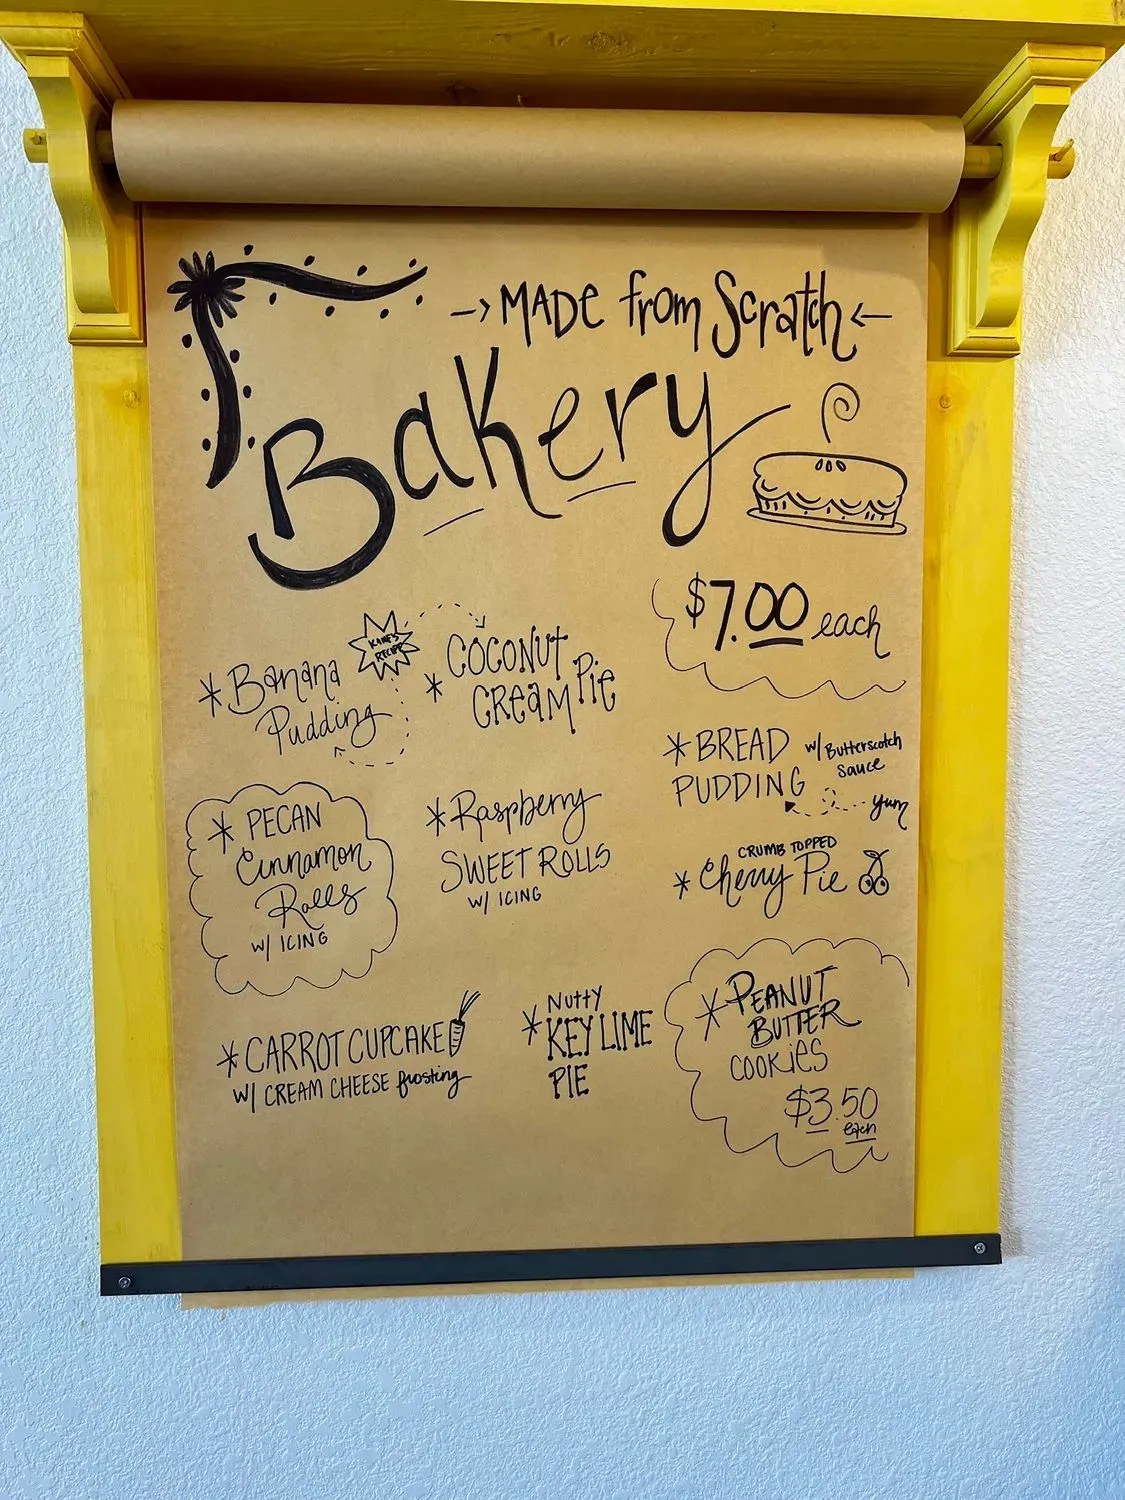 → MADE from Scratch ←
Bakery
$7.00 each
RECIPE
* Banana
Pudding
* COCONUT
CREAM PIE
* BREAD
PUDDING
w/ Butterscotch
sauce
yum
* PECAN
Cinnamon
Rolls
w/ ICING
* Raspberry
SWEET ROLLS
w/ ICING
CRUMB TOPPED
* Cherry Pie
* CARROT CUPCAKE
w/ CREAM CHEESE frosting
* Nutty
KEY LIME
PIE
* PEANUT
BUTTER
COOKIES
$3.50
each